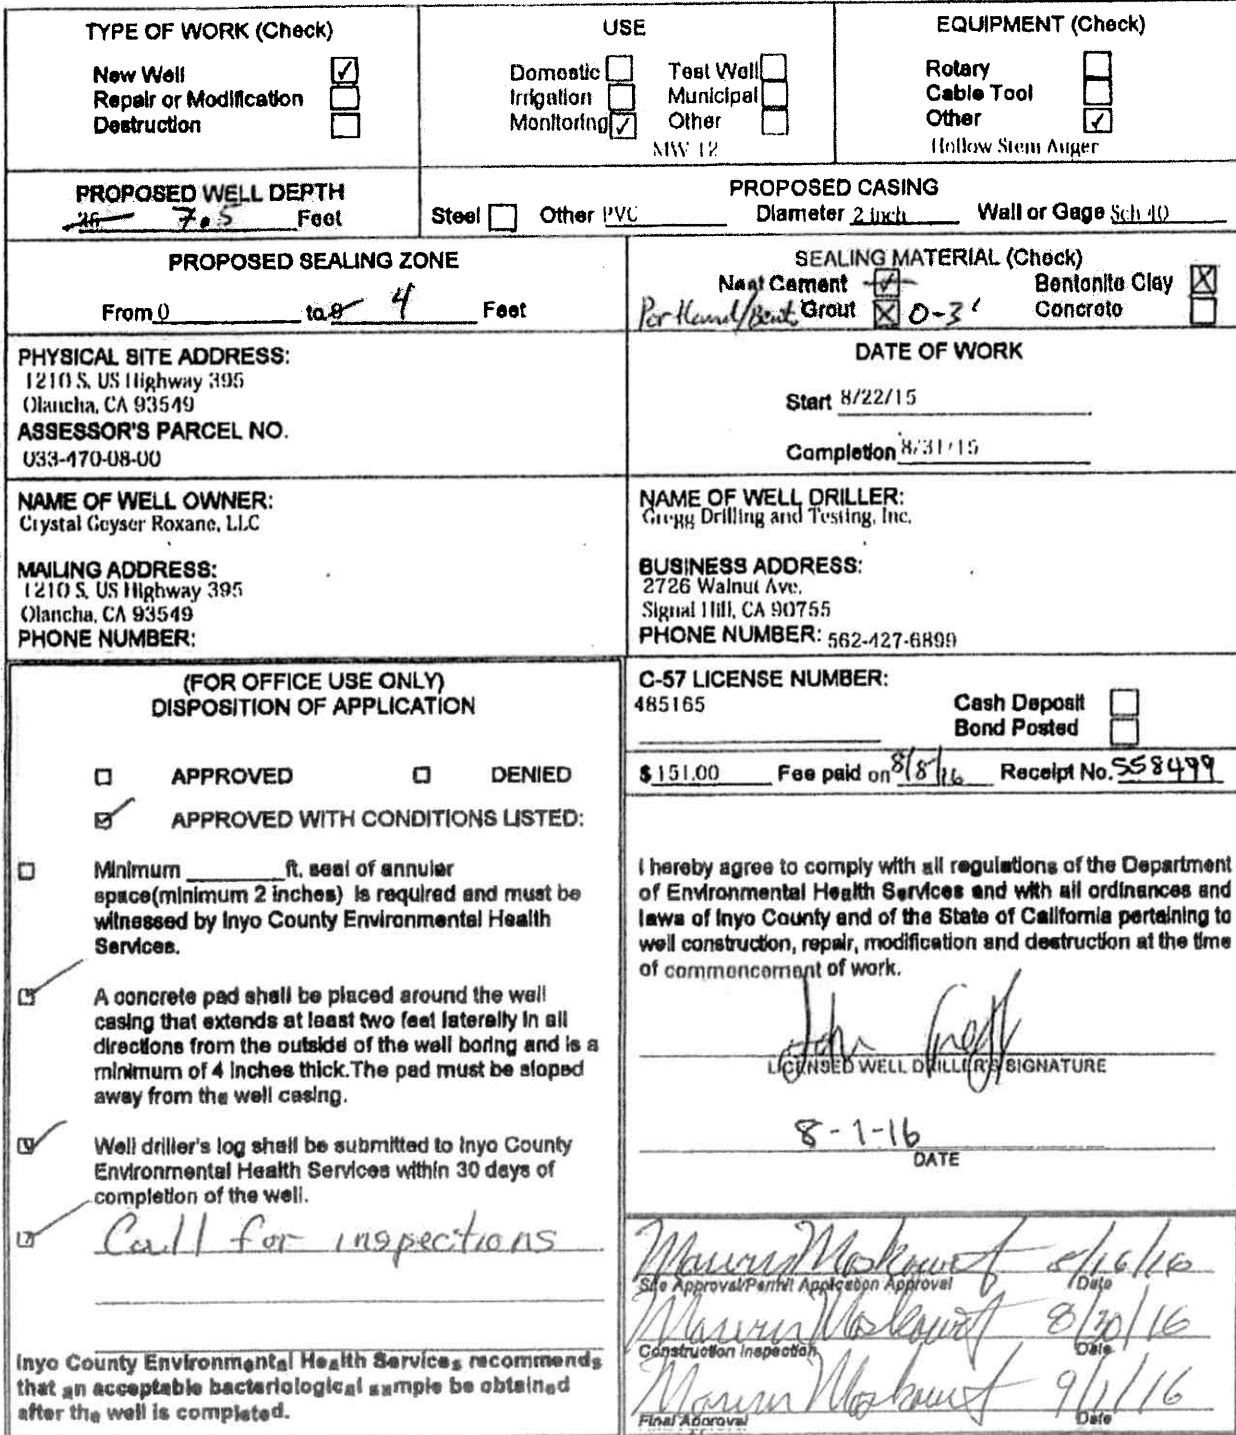 TYPE OF WORK (Check)
New Well
Repair or Modification
Destruction
USE
Domestic Test Well
Irrigation Municipal
Monitoring Other
MW 12
EQUIPMENT (Check)
Rotary
Cable Tool
Other
Hollow Stem Auger
PROPOSED WELL DEPTH
7.5 Feet
PROPOSED CASING
Steel Other PVC Diameter 2 inch Wall or Gage Sch 40
PROPOSED SEALING ZONE
From 0 to 4 Feet
SEALING MATERIAL (Check)
Neat Cement Bentonite Clay
Portland/Bent. Grout 0-3' Concrete
PHYSICAL SITE ADDRESS:
1210 S. US Highway 395
Olancha, CA 93549
ASSESSOR'S PARCEL NO.
033-470-08-00
DATE OF WORK
Start 8/22/15
Completion 8/31/15
NAME OF WELL OWNER:
Crystal Geyser Roxane, LLC
MAILING ADDRESS:
1210 S. US Highway 395
Olancha, CA 93549
PHONE NUMBER:
NAME OF WELL DRILLER:
Gregg Drilling and Testing, Inc.
BUSINESS ADDRESS:
2726 Walnut Ave.
Signal Hill, CA 90755
PHONE NUMBER: 562-427-6899
(FOR OFFICE USE ONLY)
DISPOSITION OF APPLICATION
APPROVED DENIED
APPROVED WITH CONDITIONS LISTED:
Minimum ft. seal of annular
space(minimum 2 inches) is required and must be
witnessed by Inyo County Environmental Health
Services.
A concrete pad shall be placed around the well
casing that extends at least two feet laterally in all
directions from the outside of the well boring and is a
minimum of 4 inches thick.The pad must be sloped
away from the well casing.
Well driller's log shall be submitted to Inyo County
Environmental Health Services within 30 days of
completion of the well.
Call for inspections
Inyo County Environmental Health Services recommends
that an acceptable bacteriological sample be obtained
after the well is completed.
C-57 LICENSE NUMBER:
485165 Cash Deposit
Bond Posted
$ 151.00 Fee paid on 8/8/16 Receipt No. 558499
I hereby agree to comply with all regulations of the Department
of Environmental Health Services and with all ordinances and
laws of Inyo County and of the State of California pertaining to
well construction, repair, modification and destruction at the time
of commencement of work.
John Gregg
LICENSED WELL DRILLER'S SIGNATURE
8-1-16
DATE
Moskowitz 8/16/16
Site Approval/Permit Application Approval Date
Moskowitz 8/30/16
Construction Inspection Date
Moskowitz 9/1/16
Final Approval Date